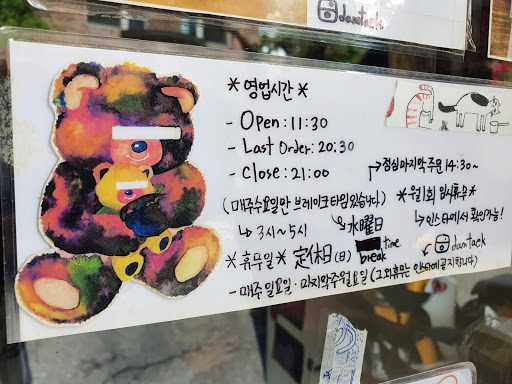 damtack
* 영업시간 *
- Open: 11:30
- Last Order: 20:30
- Close: 21:00
↱점심 마지막 주문 14:30~
(매주 수요일만 브레이크 타임 있습니다)
↳ 3시~5시
水曜日
time
break
*월1회 임시휴무*
↳ 인스타에서 확인가능!
damtack
*휴무일* 定休日(日)
- 매주 일요일·마지막주 월요일 (그외휴무는 인스타에 공지합니다)